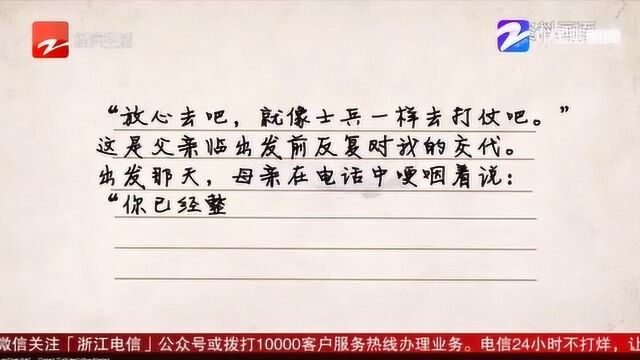 “放心去吧，就像士兵一样去打仗吧。”
这是父亲临出发前反复对我的交代。
出发那天，母亲在电话中哽咽着说：
“你已经整
微信关注「浙江电信」公众号或拨打10000客户服务热线办理业务。电信24小时不打烊，让